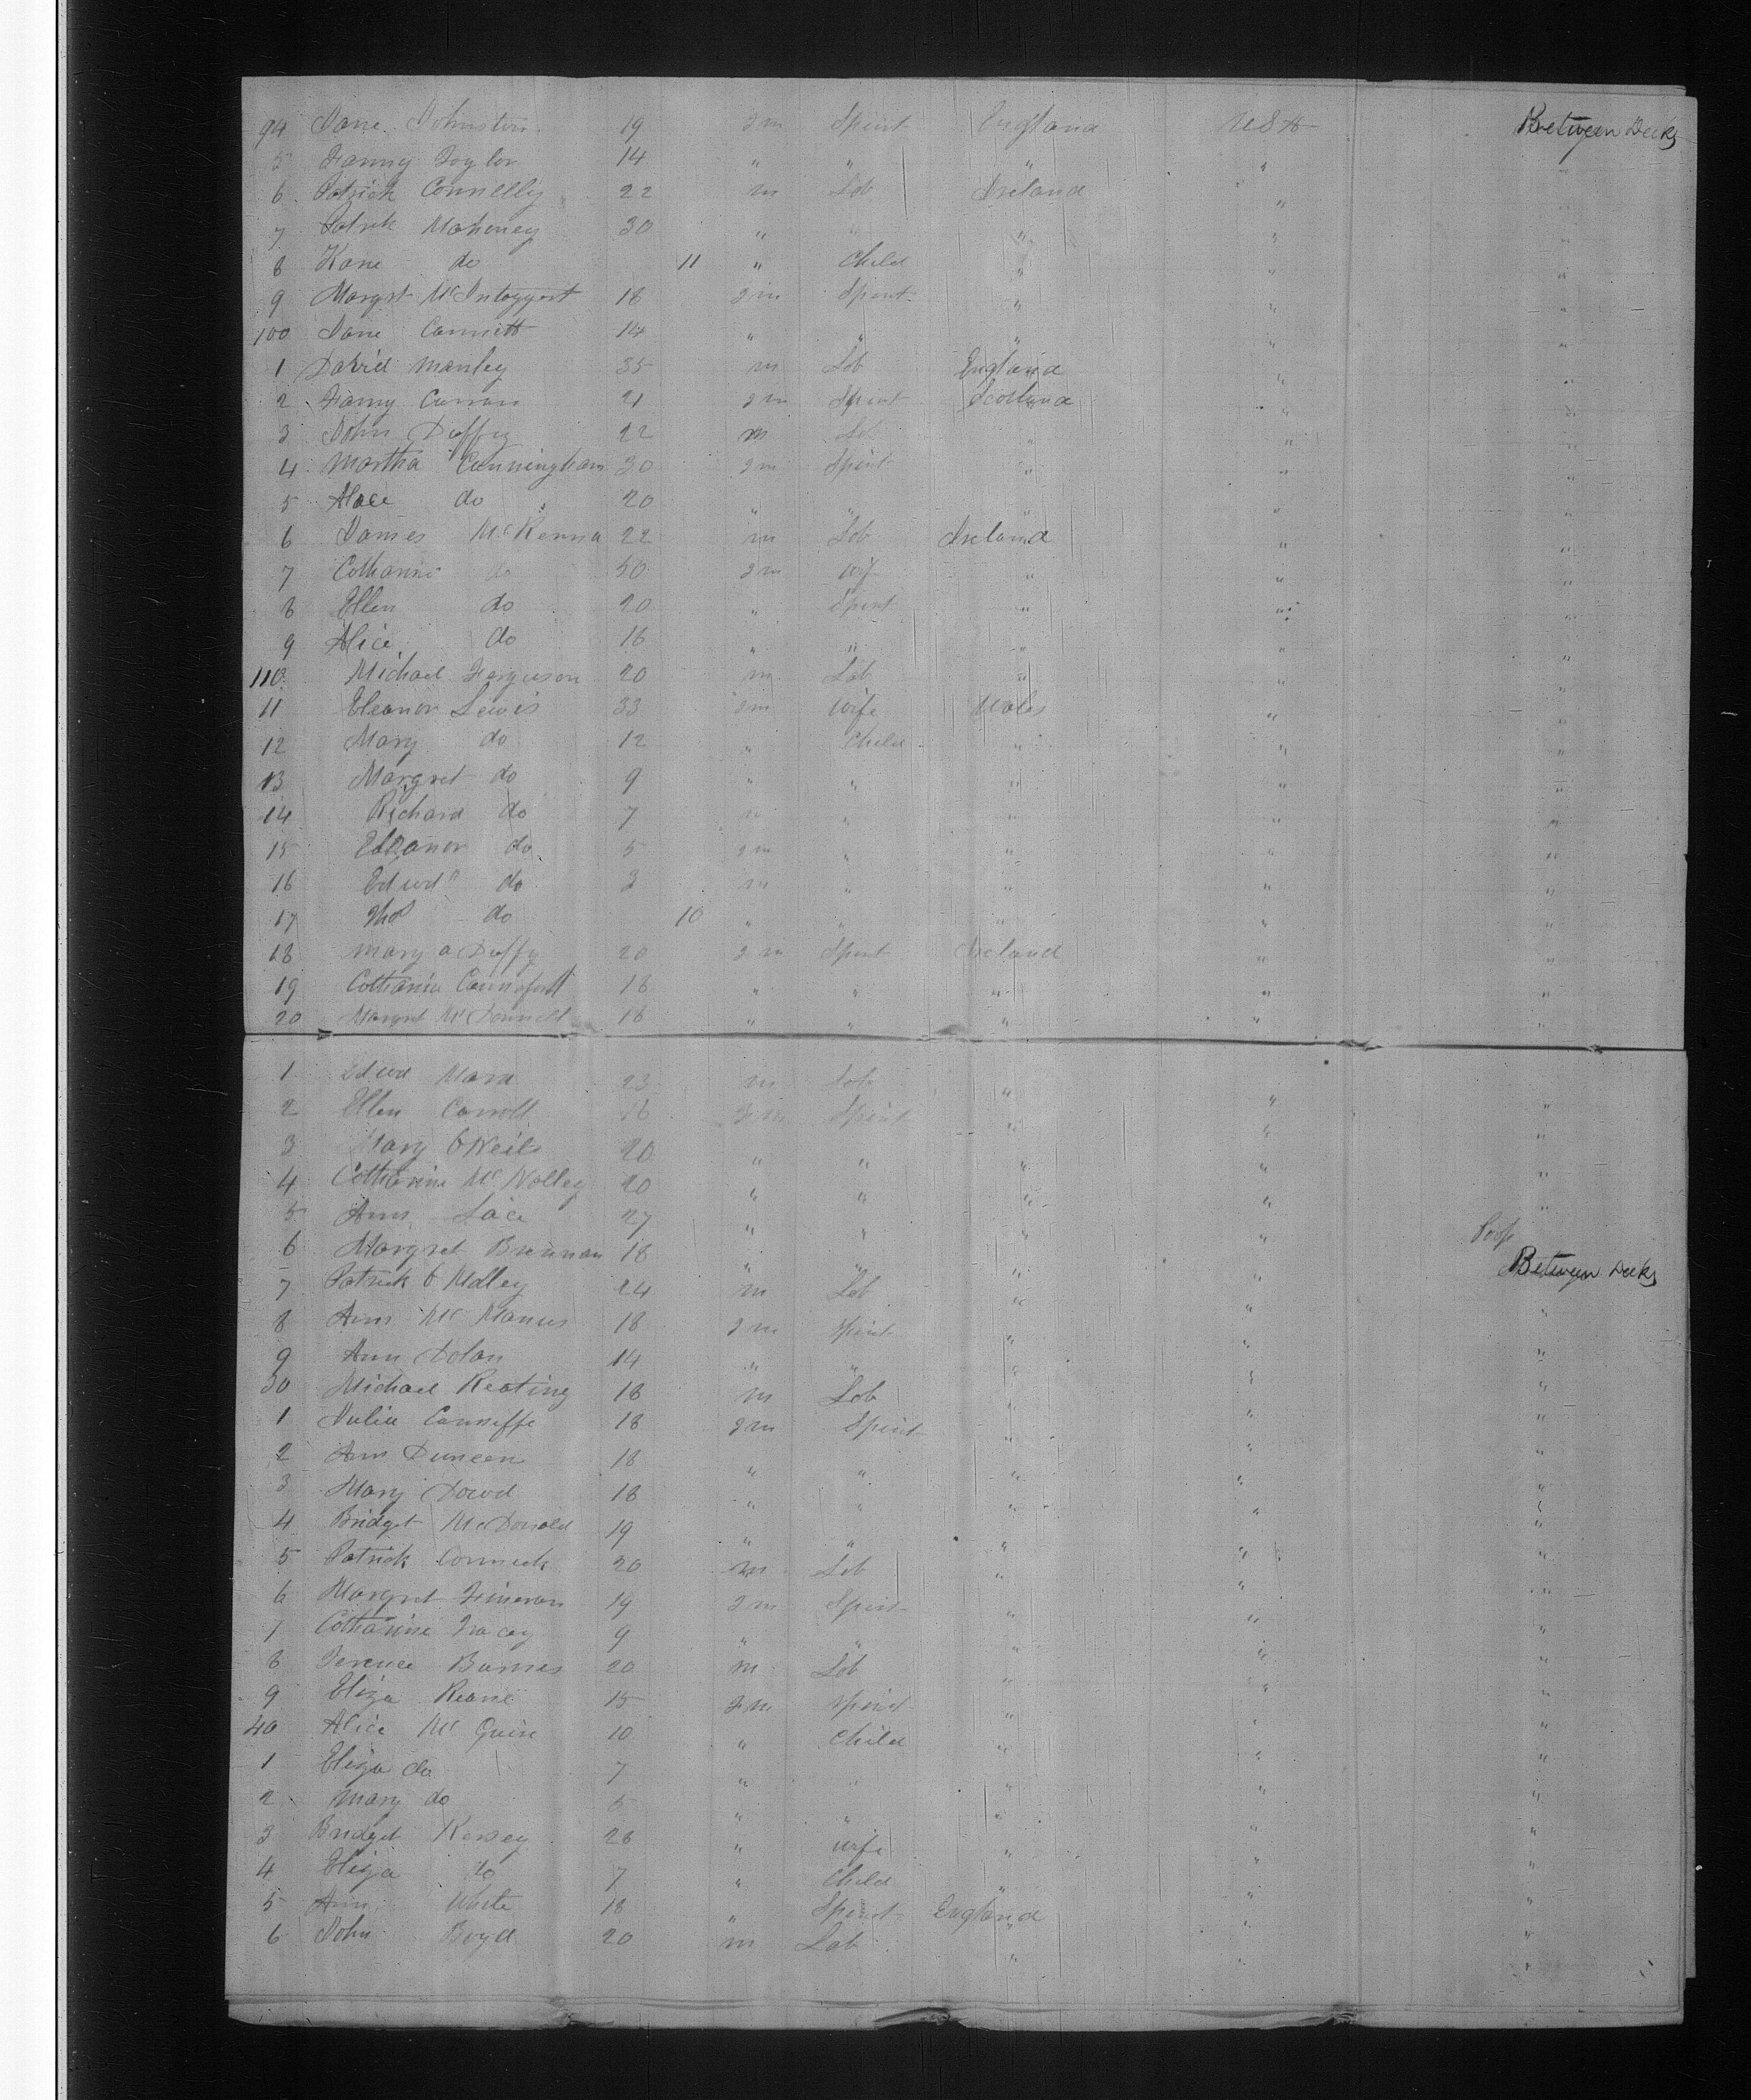 94 Jane Johnston 19 Fm Spinst England USA Between Decks
5 Fanny Taylor 14 " " " " "
6 Patrick Connelly 22 m Lab Ireland " "
7 Patrick Mahoney 30 " " " " "
8 Kane do 11 " Child " " "
9 Margrt McIntaggert 18 Fm Spinst " " "
100 Jane 14 " " " " "
1 David Manley 35 m Lab England " "
2 Fanny Curran 21 Fm Spinst Scotland " "
3 John Duffy 22 m Lab " " "
4 Martha Cunningham 30 Fm Spinst " " "
5 Alace do 20 " " " " "
6 James McKenna 22 m Lab Ireland " "
7 Catharine do 50 Fm wif " " "
8 Ellen do 20 " Spinst " " "
9 Alice do 16 " " " " "
110 Michael Ferguson 20 m Lab " " "
11 Eleanor Lewis 33 Fm Wife Wales " "
12 Mary do 12 " Child " " "
13 Margret do 9 " " " " "
14 Richard do 7 m " " " "
15 Eleanor do 5 Fm " " " "
16 Edwd do 3 m " " " "
17 Thos do 10 " " " " "
18 Mary a Duffy 20 Fm Spinst Ireland " "
19 Catharine 18 " " " " "
20 Margrt McDonnell 18 " " " " "
1 Edwd 23 m Lab " " "
2 Ellen Carroll Fm Spinst " " "
3 Mary O'Neils 20 " " " " "
4 Catharine McNolley 20 " " " " "
5 Ann Lace 27 " " " " Poop
6 Margret Brennan 18 " " " " Between Decks
7 Patrick O 24 m Lab " " "
8 Ann McManus 18 Fm Spinst " " "
9 Ann Dolan 14 " " " " "
30 Michael Keating 18 m Lab " " "
1 Julia Cunneffe 18 Fm Spinst " " "
2 Ann Duncan 18 " " " " "
3 Mary Dowd 18 " " " " "
4 Bridget McDonald 19 " " " " "
5 Patrick Cormick 20 m Lab " " "
6 Margret Fineran 19 Fm Spinst " " "
7 Catharine Tracey 9 " " " " "
8 Terence Burnes 20 m Lab " " "
9 Eliza Keane 15 Fm Spinst " " "
40 Alice McGuire 10 " Child " " "
1 Eliza do 7 " " " " "
2 Mary do 5 " " " " "
3 Bridget Kersey 28 " wife " " "
4 Eliza do 7 " Child " " "
5 Ann White 18 " Spinst England " "
6 John Boyd 20 m Lab " " "